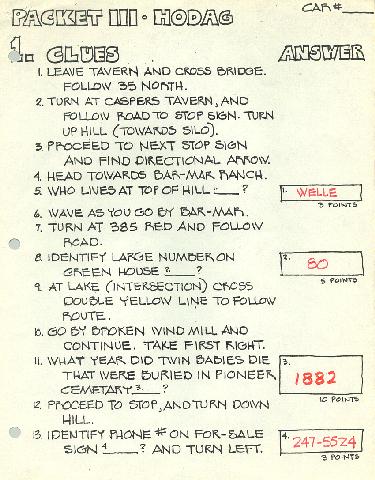 PACKET III · HODAG
CAR #___
1. CLUES
ANSWER
1. LEAVE TAVERN AND CROSS BRIDGE.
FOLLOW 35 NORTH.
2. TURN AT CASPERS TAVERN, AND
FOLLOW ROAD TO STOP SIGN. TURN
UP HILL (TOWARDS SILO).
3. PROCEED TO NEXT STOP SIGN
AND FIND DIRECTIONAL ARROW.
4. HEAD TOWARDS BAR-MAR RANCH.
5. WHO LIVES AT TOP OF HILL 1.___?
1. WELLE
3 POINTS
6. WAVE AS YOU GO BY BAR-MAR.
7. TURN AT 385 RED AND FOLLOW
ROAD.
8. IDENTIFY LARGE NUMBER ON
GREEN HOUSE 2.___?
2. 80
5 POINTS
9. AT LAKE (INTERSECTION) CROSS
DOUBLE YELLOW LINE TO FOLLOW
ROUTE.
10. GO BY BROKEN WIND MILL AND
CONTINUE. TAKE FIRST RIGHT.
11. WHAT YEAR DID TWIN BABIES DIE
THAT WERE BURIED IN PIONEER
CEMETARY 3.___?
3. 1882
10 POINTS
12. PROCEED TO STOP, AND TURN DOWN
HILL.
13. IDENTIFY PHONE # ON FOR-SALE
SIGN 4.___? AND TURN LEFT.
4. 247-5524
3 POINTS